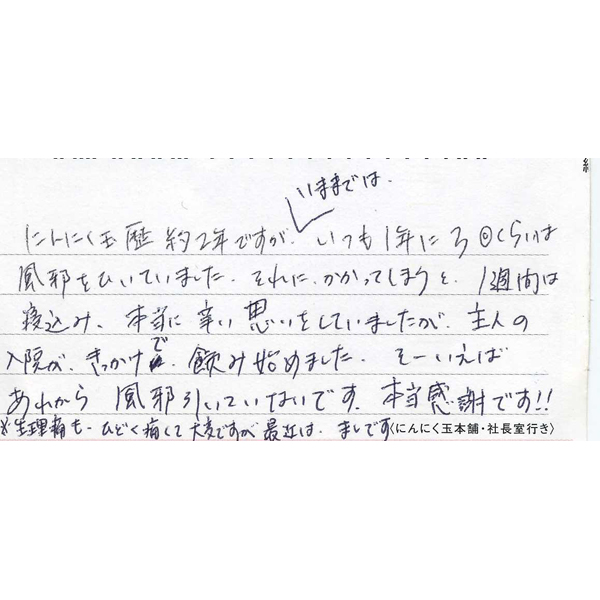 いままでは、
にんにく玉歴約2年ですが、いつも1年に3回くらいは
風邪をひいていました。それに、かかってしまうと、1週間は
寝込み、本当に辛い思いをしていましたが、主人の
入院が、きっかけで、飲み始めました。そーいえば
あれから風邪引いていないです。本当感謝です!!
※生理痛も、ひどく痛くて大変ですが最近は、ましです
〈にんにく玉本舗・社長室行き〉